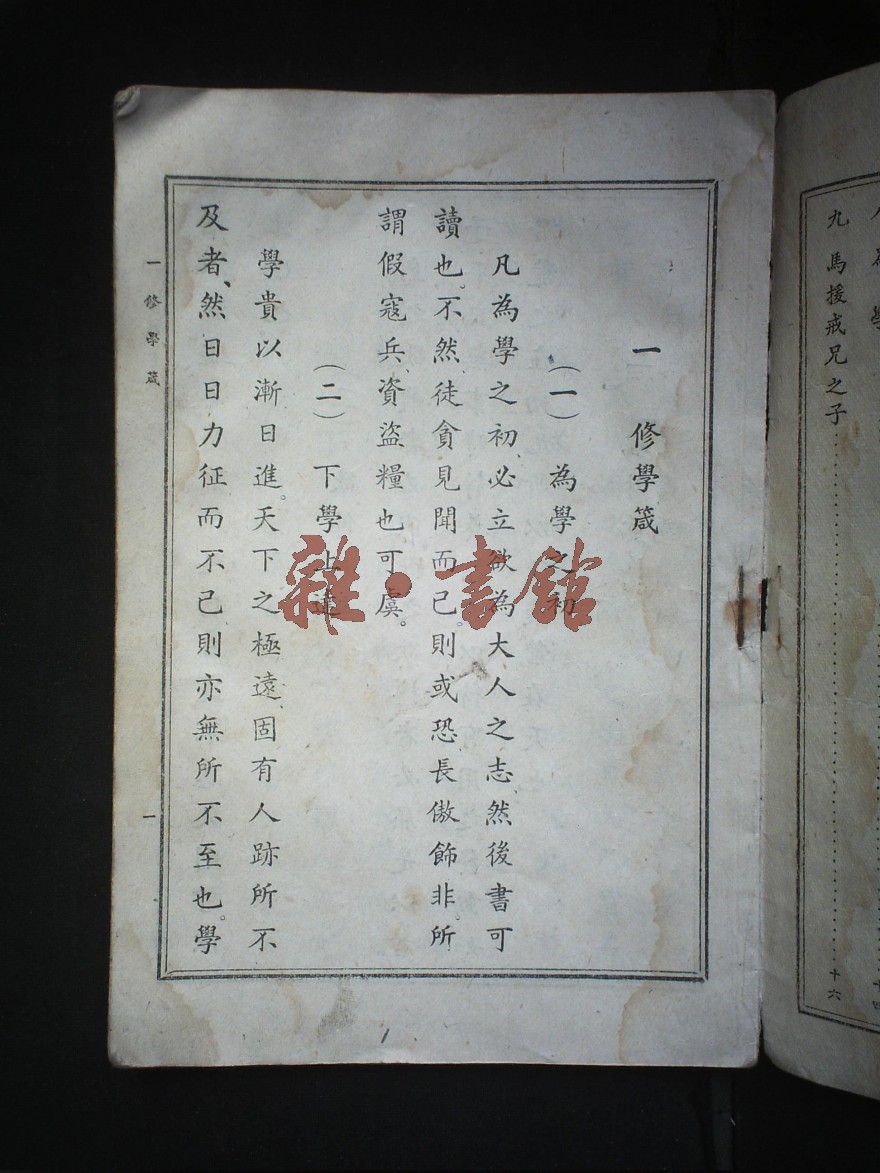 一　修學箴
（一）為學之初
凡為學之初、必立欲為大人之志、然後書可
讀也。不然、徒貪見聞而已。則或恐長傲飾非。所
謂假寇兵、資盜糧也可虞。
（二）下學上達
學貴以漸日進。天下之極遠、固有人跡所不
及者、然日日力征而不已則亦無所不至也。學
一 修學箴
一
九 馬援戒兄之子……十六
十四
雜·書館